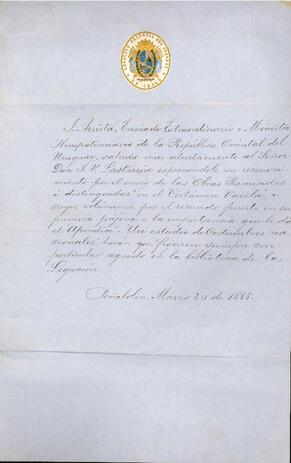 EN CHILE
J. Arrieta, Enviado Extraordinario e Ministro
Plenipotenciario de la República Oriental del
Uruguay, saluda mui atentamente al Señor
Don J. V. Lastarria espresándole su reconoci-
miento por el envío de las Obras Premiadas
i distinguidas "en el Certamen Varela"
cuyos volúmenes, por el recuerdo puesto en su
primera pájina i la importancia que le dá
el Apéndice "Un estudio de Costumbres na-
cionales" harán que figuren siempre con
particular agrado en la biblioteca de la
Legación.
Peñalolen, Marzo 20 de 1888.